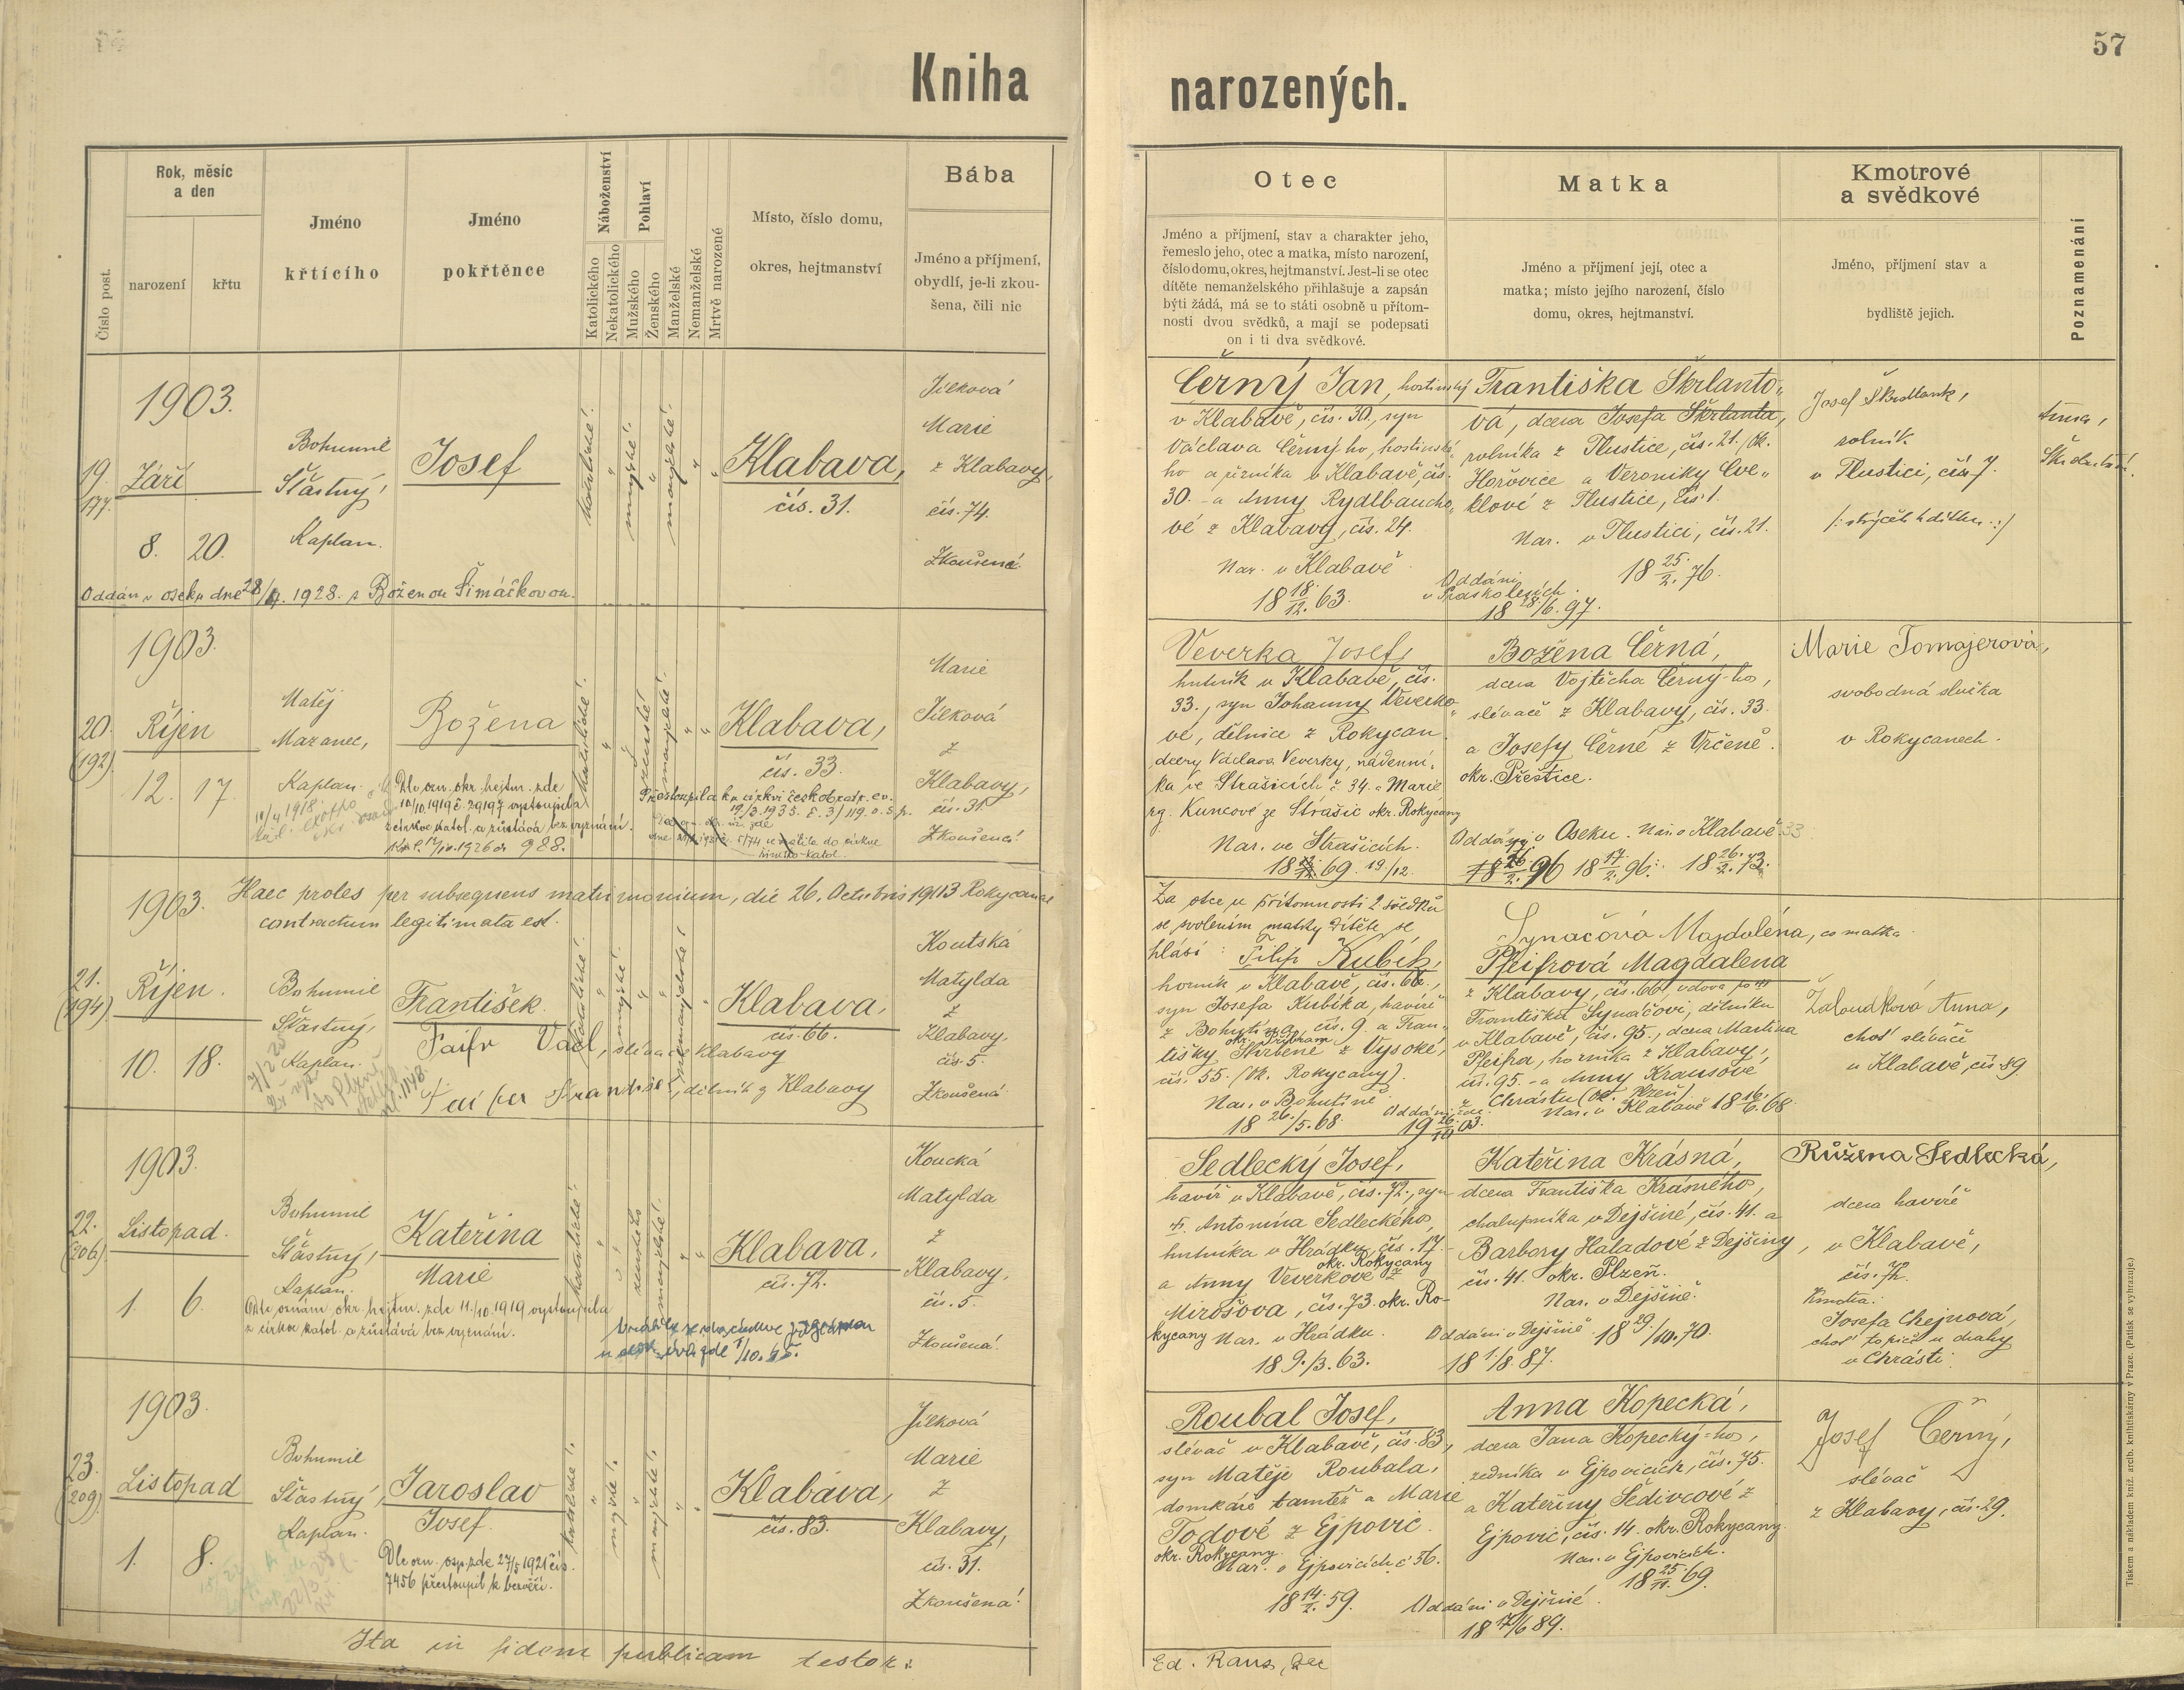 57
Kniha narozených.
Číslo post.
Rok, měsíc
a den
narození
křtu
Jméno
křtícího
Jméno
pokřtěnce
Náboženství
Katolického
Nekatolického
Pohlaví
Mužského
Ženského
Manželské
Nemanželské
Mrtvě narozené
Místo, číslo domu,
okres, hejtmanství
Bába
Jméno a příjmení,
obydlí, je-li zkou-
šena, čili nic
Otec
Jméno a příjmení, stav a charakter jeho,
řemeslo jeho, otec a matka, místo narození,
číslo domu, okres, hejtmanství. Jest-li se otec
dítěte nemanželského přihlašuje a zapsán
býti žádá, má se to státi osobně u přítom-
nosti dvou svědků, a mají se podepsati
on i ti dva svědkové.
Matka
Jméno a příjmení její, otec a
matka; místo jejího narození, číslo
domu, okres, hejtmanství.
Kmotrové
a svědkové
Jméno, příjmení stav a
bydliště jejich.
Poznamenání
1903.
19.
177.
Září
8. 20.
Bohumil
Šťastný,
Kaplan.
Josef
katolické!
mužské!
manželské!
Klabava,
čís. 31.
Jílková
Marie
z Klabavy,
čís. 74.
Zkoušená
Oddán v Oseku dne 28/4. 1928. s Boženou Šimáčkovou.
Černý Jan, hostinský
v Klabavě, čís. 30., syn
Václava Černýho, hostinské-
ho a řezníka v Klabavě, čís.
30. a Anny Rydlbaucho-
vé z Klabavy, čís. 24.
Nar. v Klabavě
18 18./12. 63.
Františka Škrlanto-
vá, dcera Josefa Škrlanta,
rolníka z Tlustice, čís. 21. /Ok.
Hořovice a Veroniky Cve-
klové z Tlustice, čís. 1.
Nar. v Tlustici, čís. 21.
18 25./2. 76.
Oddáni
v Praskolesích
18 28/6. 97.
Josef Škrdlant,
rolník
v Tlustici, čís. 7.
/: strýček dítku :/
Anna,
1903.
20.
(192)
Říjen
12. 17.
Matěj
Mazanec,
Kaplan.
Božena
Dle ozn. okr. hejtm. zde
10/10. 1919 č. 29197 vystoupila
z církve katol. a zůstává bez vyznání.
katolické!
ženské!
manželské!
Klabava,
čís. 33.
Přestoupila ku církvi českobratr. ev.
19/3. 1935. č. 3/119. o. s. p.
Marie
Jílková
z
Klabavy,
čís. 31.
Zkoušená!
Veverka Josef,
hutník v Klabavě, čís.
33., syn Johanny Veverko-
vé, dělnice z Rokycan
dcery Václava Veverky, nádenní-
ka ve Strašicích č. 34. a Marie
rz. Kuncové ze Strašic okr. Rokycany
Nar. ve Strašicích.
18 69. 19/12.
Božena Černá,
dcera Vojtěcha Černý-ho,
slévače z Klabavy, čís. 33.
a Josefy Černé z Vrčeně.
okr. Přeštice.
Oddáni v Oseku. Nar. v Klabavě 33
18 17/2. 96. 18 26./2. 73.
Marie Tomajerová,
svobodná služka
v Rokycanech.
1903. Haec proles per subsequens matrimonium, die 26. Octobris 1903 Rokycanae
contractum legitimata est.
21.
(194)
Říjen.
10. 18.
Bohumil
Šťastný,
Kaplan.
František
katolické!
mužské!
nemanželské!
Klabava,
čís. 66.
Faifr Václ, slévač z Klabavy
Faifer František, dělník z Klabavy
Koutská
Matylda
z
Klabavy,
čís. 5.
Zkoušená
Za otce u přítomnosti 2 svědků
se svolením matky dítěte se
hlásí: Filip Kubík,
horník v Klabavě, čís. 66.,
syn Josefa Kubíka, havíře
z Bohutína, čís. 9. a Fran-
okr. Příbram
tišky Škrbené z Vysoké,
čís. 55. (Ok. Rokycany).
Nar. v Bohutíně
18 26./5. 68.
Oddáni zde.
19 26./10 03.
Synačová Majdaléna, co matka
Pfeifrová Magdalena
z Klabavy, čís. 66. vdova po †
Františku Synáčovi, dělníku
v Klabavě, čís. 95., dcera Martina
Pfeifra, horníka z Klabavy,
čís. 95. a Anny Krausové
z Chrástu (ok. Plzeň)
Nar. v Klabavě 18 16./6. 68.
Žaloudková Anna,
choť slévače
v Klabavě, čís. 89
1903.
22.
(206)
Listopad.
1. 6.
Bohumil
Šťastný,
Kaplan.
Kateřina
Marie
Dle oznám. okr. hejtm. zde 11./10 1919 vystoupila
z církve katol. a zůstává bez vyznání.
katolické!
ženského
manželské!
Klabava,
čís. 72.
Koucká
Matylda
z
Klabavy,
čís. 5.
Zkoušená!
Sedlecký Josef,
havíř v Klabavě, čís. 72., syn
Antonína Sedleckého,
hutníka v Hrádku, čís. 17.
okr. Rokycany
a Anny Veverkové z
Mirošova, čís. 73. okr. Ro-
kycany Nar. v Hrádku.
18 9./3. 63.
Kateřina Krásná,
dcera Františka Krásného,
chalupníka v Dejšině, čís. 41. a
Barbory Haladové z Dejšiny,
čís. 41. okr. Plzeň.
Nar. v Dejšině.
Oddáni v Dejšině 18 29./10. 70.
18 1./8. 87.
Růžena Sedlecká,
dcera havíře
v Klabavě,
čís. 72.
Kmotra:
Josefa Chejnová,
choť topiče u dráhy
v Chrásti.
1903.
23.
(209)
Listopad
1. 8.
Bohumil
Šťastný,
Kaplan.
Jaroslav
Josef.
Dle ozn. osp. zde 27/5 1921 čís.
7456 přestoupil k bezvěří.
katolické!
mužské!
manželské!
Klabava,
čís. 83.
Jílková
Marie
z
Klabavy,
čís. 31.
Zkoušená!
Roubal Josef,
slévač v Klabavě, čís. 83,
syn Matěje Roubala,
domkáře tamtéž a Marie
Todové z Ejpovic.
okr. Rokycany.
Nar. v Ejpovicích č. 56.
18 14./2. 59.
Anna Kopecká,
dcera Jana Kopecký-ho,
zedníka v Ejpovicích, čís. 75.
a Kateřiny Šedivcové z
Ejpovic, čís. 14. okr. Rokycany.
Nar. v Ejpovicích.
18 25./11. 69.
Oddáni v Dejšině
18 17/6 89.
Josef Černý,
slévač
z Klabavy, čís. 29.
Ita in fidem publicam testor:
Ed. Raus,
Tiskem a nákladem kníž. arcib. knihtiskárny v Praze. (Patisk se vyhrazuje.)